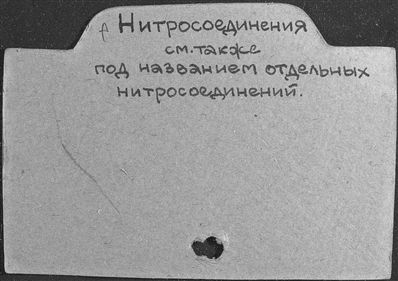 Нитросоединения
см. также
под названием отдельных
нитросоединений.